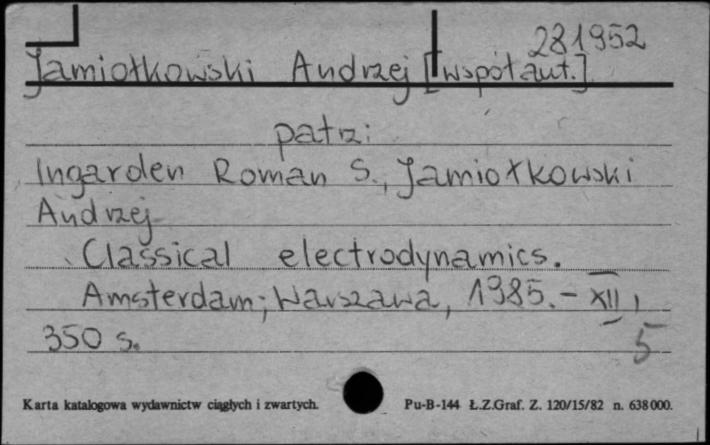 281952
Jamiołkowski Andrzej [współaut.]
patrz:
Ingarden Roman S., Jamiołkowski
Andrzej
Classical electrodynamics.
Amsterdam; Warszawa, 1985. - XII,
350 s.
5
Karta katalogowa wydawnictw ciągłych i zwartych. Pu-B-144 Ł.Z.Graf. Z. 120/15/82 n. 638000.